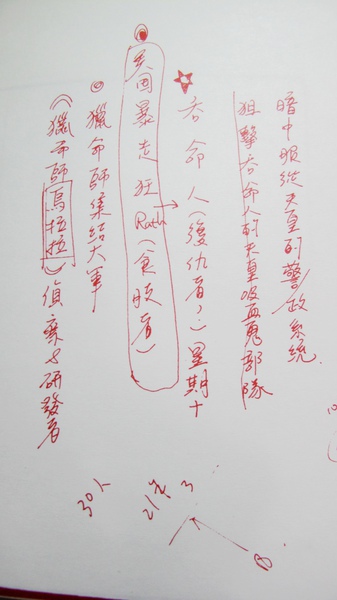 暗中服從天皇的警政系統
狙擊吞命人的天皇吸血鬼部隊
☆吞命人(復仇者?)星期十
美國暴走狂Rath(食腦者)
◎獵命師集結大軍
(獵命師烏拉拉)偵察与研發者
30人
3
8